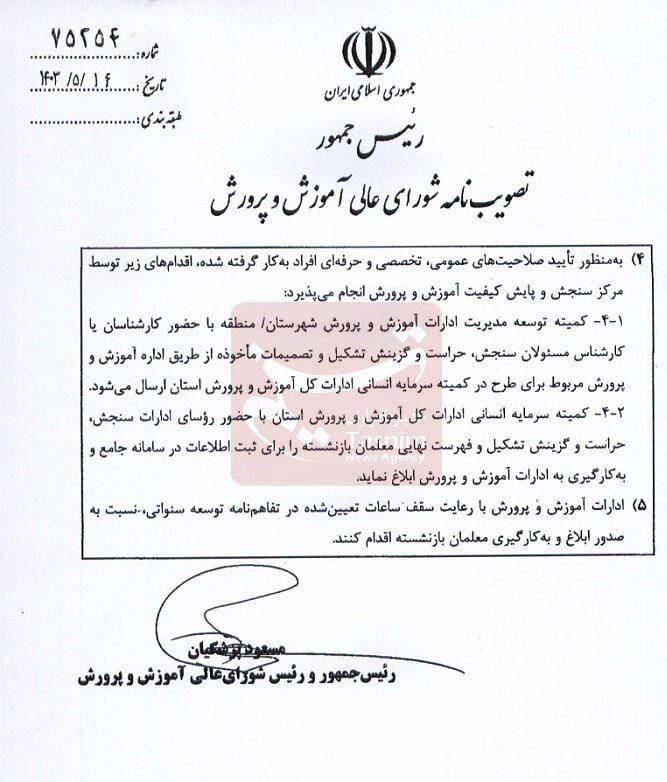 شماره: ۷۵۲۵۴
تاریخ: ۱۴۰۳/۵/۱۴
طبقه بندی:
جمهوری اسلامی ایران
رئیس جمهور
تصویب نامه شورای عالی آموزش و پرورش
۴) به‌منظور تأیید صلاحیت‌های عمومی، تخصصی و حرفه‌ای افراد به‌کار گرفته شده، اقدام‌های زیر توسط
مرکز سنجش و پایش کیفیت آموزش و پرورش انجام می‌پذیرد:
۴-۱- کمیته توسعه مدیریت ادارات آموزش و پرورش شهرستان/ منطقه با حضور کارشناسان یا
کارشناس مسئولان سنجش، حراست و گزینش تشکیل و تصمیمات مأخوذه از طریق اداره آموزش و
پرورش مربوط برای طرح در کمیته سرمایه انسانی ادارات کل آموزش و پرورش استان ارسال می‌شود.
۴-۲- کمیته سرمایه انسانی ادارات کل آموزش و پرورش استان با حضور رؤسای ادارات سنجش،
حراست و گزینش تشکیل و فهرست نهایی معلمان بازنشسته را برای ثبت اطلاعات در سامانه جامع و
به‌کارگیری به ادارات آموزش و پرورش ابلاغ نماید.
۵) ادارات آموزش و پرورش با رعایت سقف ساعات تعیین‌شده در تفاهم‌نامه توسعه سنواتی، نسبت به
صدور ابلاغ و به‌کارگیری معلمان بازنشسته اقدام کنند.
مسعود پزشکیان
رئیس‌جمهور و رئیس شورای‌عالی آموزش و پرورش
تسنیم
خبرگزاری
Tasnim
News Agency